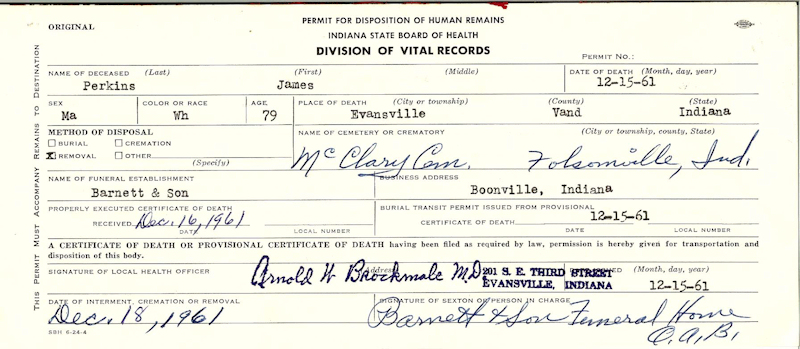 ORIGINAL
PERMIT FOR DISPOSITION OF HUMAN REMAINS
INDIANA STATE BOARD OF HEALTH
DIVISION OF VITAL RECORDS
PERMIT NO.:
THIS PERMIT MUST ACCOMPANY REMAINS TO DESTINATION
NAME OF DECEASED (Last) (First) (Middle) DATE OF DEATH (Month, day, year)
Perkins James 12-15-61
SEX COLOR OR RACE AGE PLACE OF DEATH (City or township) (County) (State)
Ma Wh 79 Evansville Vand Indiana
METHOD OF DISPOSAL NAME OF CEMETERY OR CREMATORY (City or township, county, State)
BURIAL CREMATION
X REMOVAL OTHER (Specify) McClary Cem. Folsomville, Ind.
NAME OF FUNERAL ESTABLISHMENT BUSINESS ADDRESS
Barnett & Son Boonville, Indiana
PROPERLY EXECUTED CERTIFICATE OF DEATH BURIAL TRANSIT PERMIT ISSUED FROM PROVISIONAL
RECEIVED Dec. 16, 1961 CERTIFICATE OF DEATH 12-15-61
DATE LOCAL NUMBER DATE LOCAL NUMBER
A CERTIFICATE OF DEATH OR PROVISIONAL CERTIFICATE OF DEATH having been filed as required by law, permission is hereby given for transportation and
disposition of this body.
SIGNATURE OF LOCAL HEALTH OFFICER Address (Month, day, year)
Arnold W Brockmole M.D. 201 S. E. THIRD STREET
EVANSVILLE, INDIANA 12-15-61
DATE OF INTERMENT, CREMATION OR REMOVAL SIGNATURE OF SEXTON OR PERSON IN CHARGE
Dec. 18, 1961 Barnett & Son Funeral Home
C.A.B.
SBH 6-24-4